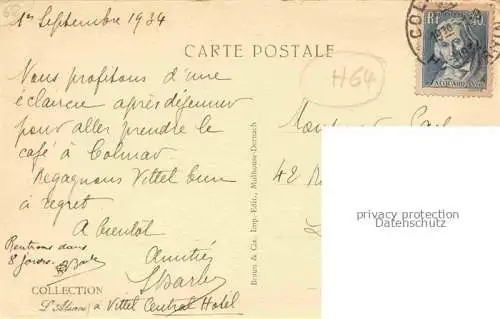 1er Septembre 1934
CARTE POSTALE
H64
Nous profitons d'une
éclaircie après déjeuner
pour aller prendre le
café à Colmar
Regagnons Vittel
à regret
A bientôt
Amitiés
Rentrons dans
8 jours
à Vittel Central Hotel
COLLECTION
L'Alsace
Braun & Cie, Imp.-Édit., Mulhouse-Dornach
RF
JACQUARD
COL
Monsieur
42
privacy protection
Datenschutz